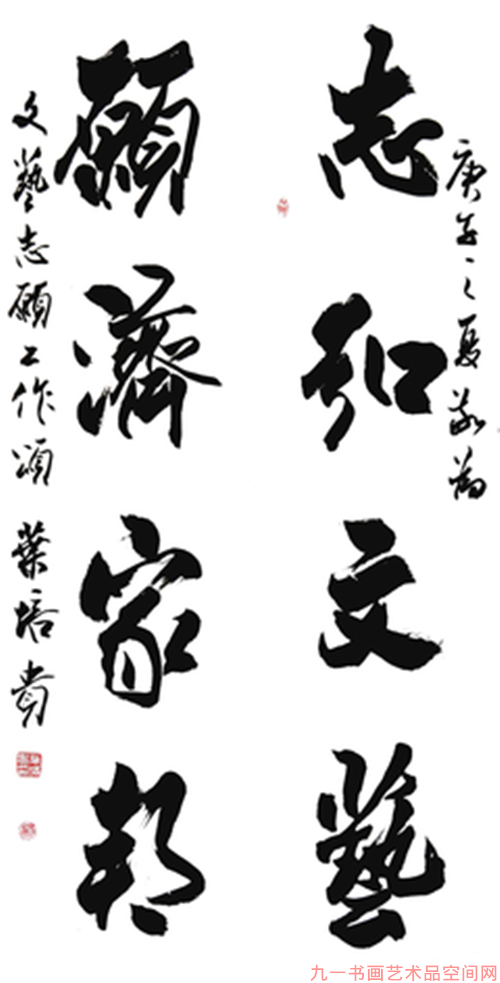 庚子之夏敬為
志弘文藝
願濟家邦
文藝志願工作頌 葉培貴
九一书画艺术品空间网